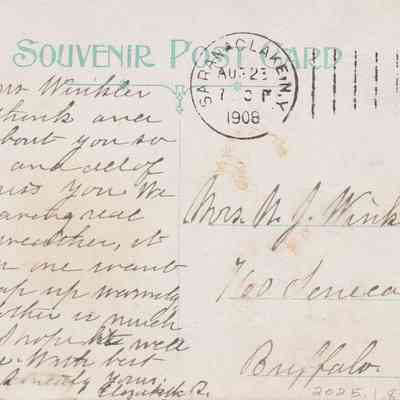 SOUVENIR POST CARD
SARANAC LAKE, N.Y.
AUG 23
7 P
1908
Winkler
think and
about you so
and all of
miss you We
having real
weather, it
one want
up warmly
is much
well
With best
yours,
Elizabeth R.
Mrs. N. J. Wink
760 Seneca
Buffalo
2025.